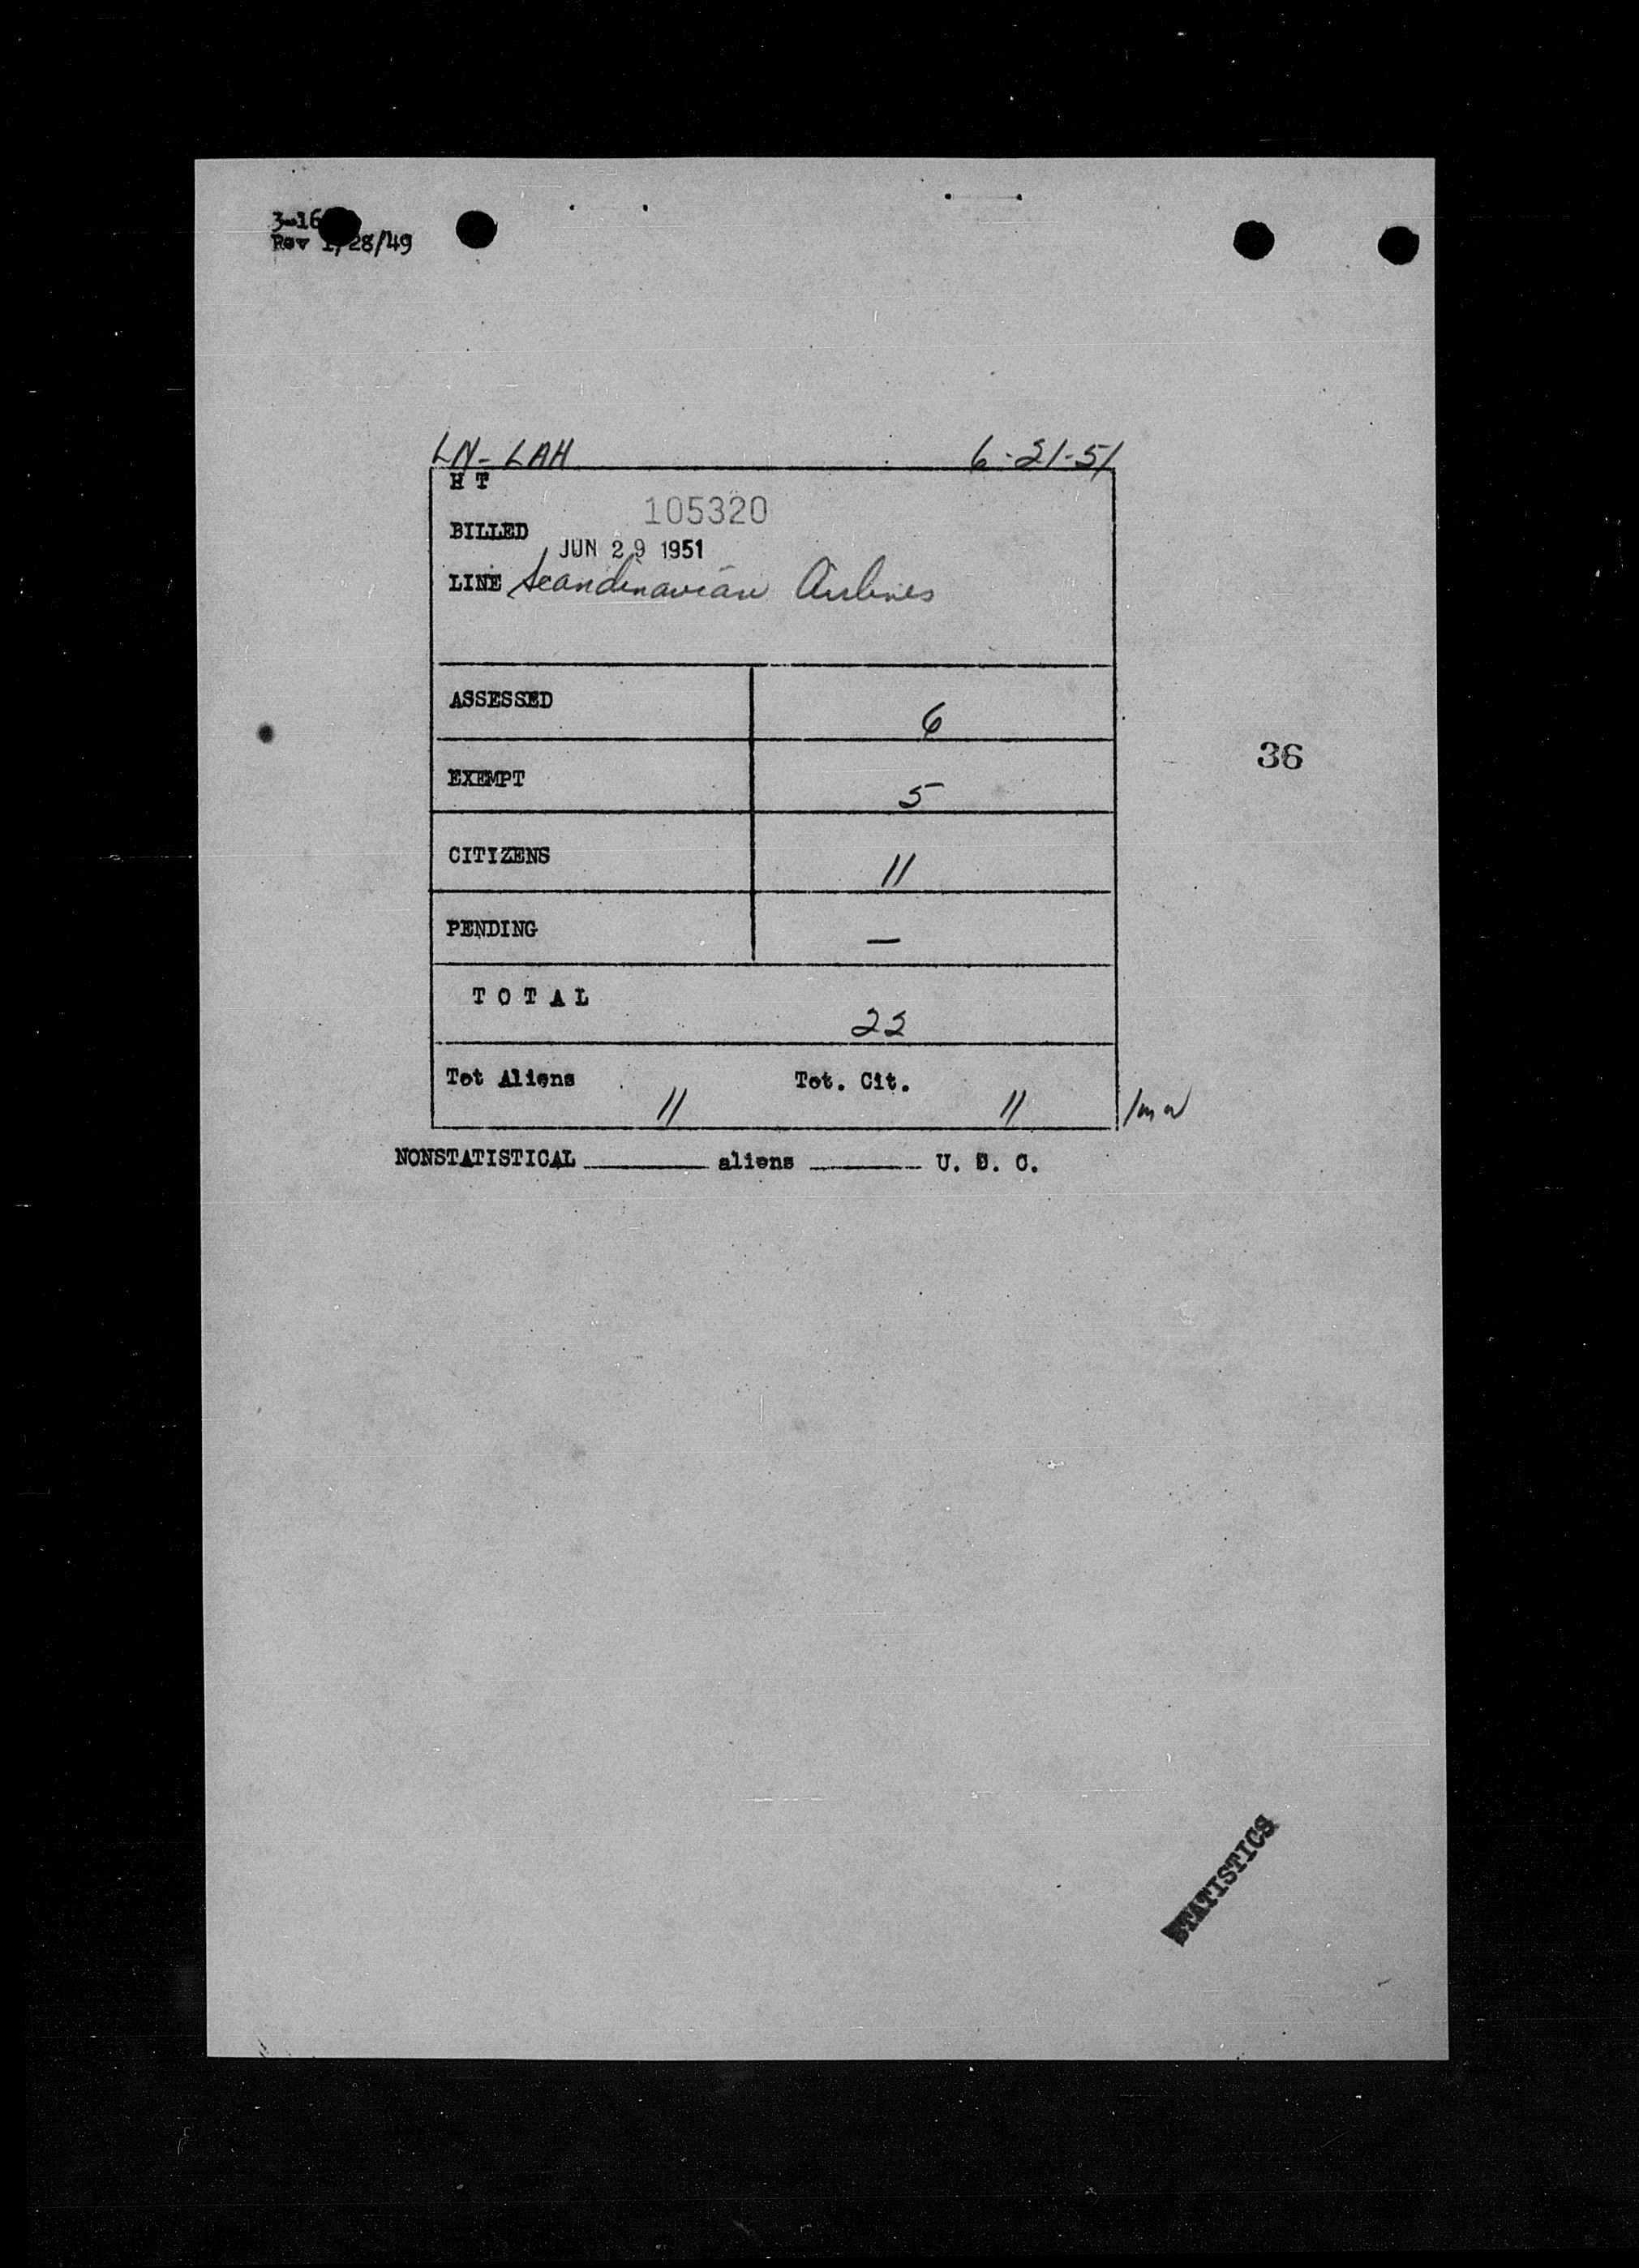 3-16
Rev 1/28/49
LN-LAH 6-21-51
H T
105320
BILLED
JUN 29 1951
LINE Scandinavian Airlines
ASSESSED 6
EXEMPT 5
36
CITIZENS 11
PENDING —
TOTAL 22
Tot Aliens 11 Tot. Cit. 11
NONSTATISTICAL ______ aliens ______ U. S. C.
STATISTICS